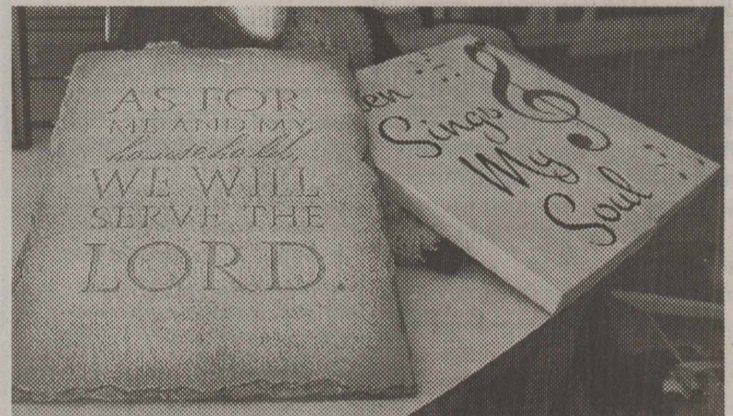 AS FOR
ME AND MY
household,
WE WILL
SERVE THE
LORD.
en
Sings
My
Soul